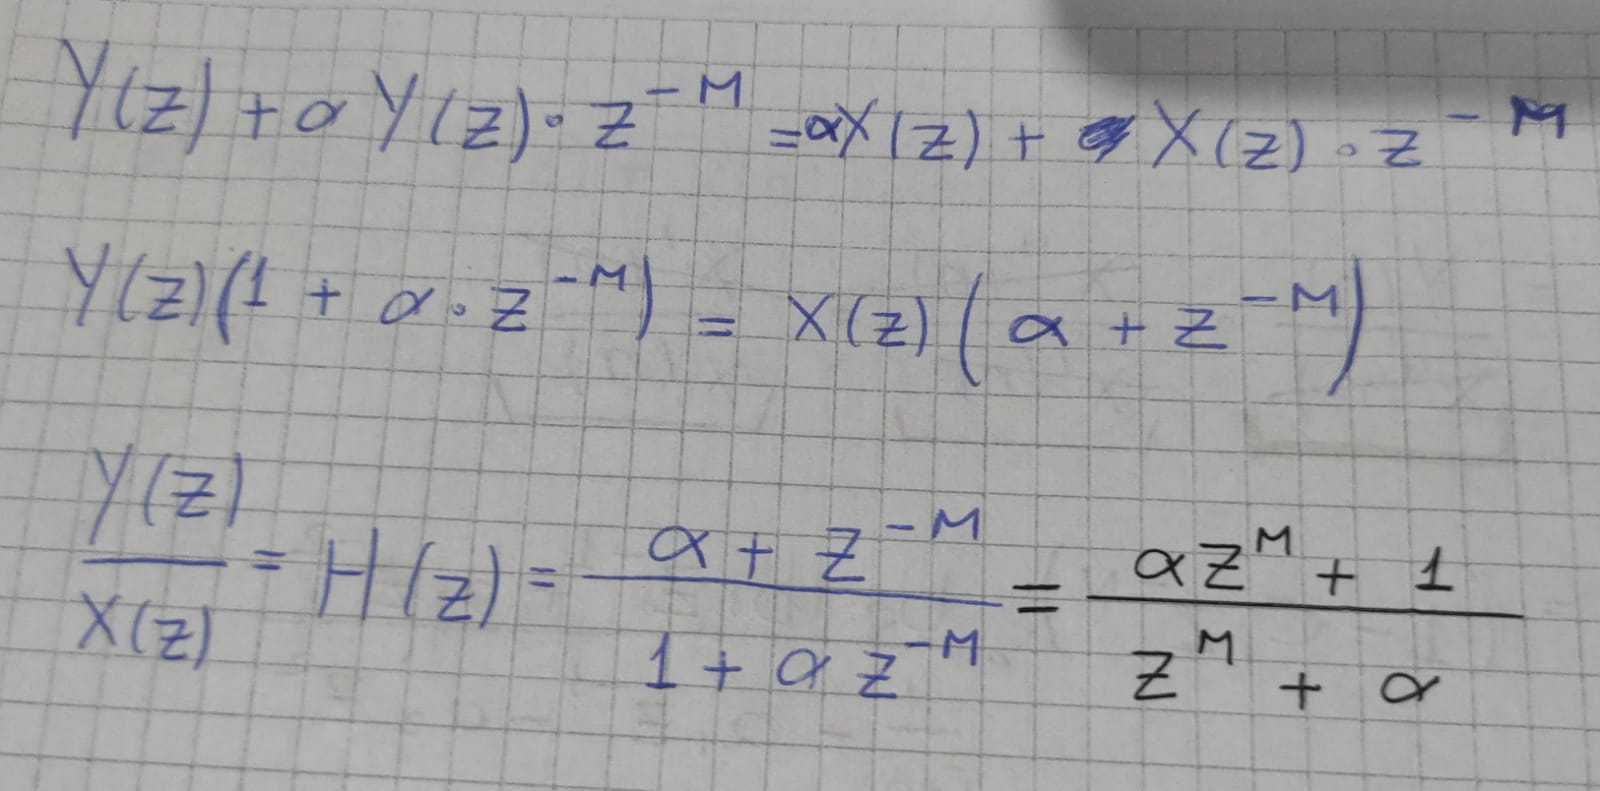 Y(z) + α Y(z) · z^{-M} = αX(z) + X(z) · z^{-M}
Y(z)(1 + α · z^{-M}) = X(z)(α + z^{-M})
Y(z)/X(z) = H(z) = (α + z^{-M})/(1 + α z^{-M}) = (αz^M + 1)/(z^M + α)